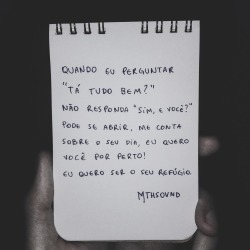 QUANDO EU PERGUNTAR
"TÁ TUDO BEM?"
NÃO RESPONDA "SIM, E VOCÊ?"
PODE SE ABRIR, ME CONTA
SOBRE O SEU DIA, EU QUERO
VOCÊ POR PERTO!
EU QUERO SER O SEU REFÚGIO.
MTHSOUND